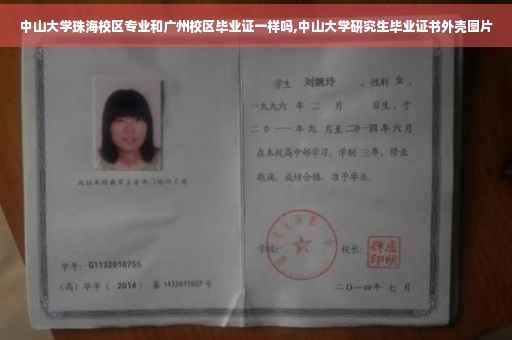 中山大学珠海校区专业和广州校区毕业证一样吗,中山大学研究生毕业证书外壳图片
学生 刘婉玲 ,性别 女 ,
一九九六 年 二 月 日生,于
二〇一一年 九 月至二〇一四年 六 月
在本校高中部学习,学制 三年,修业
期满,成绩合格,准予毕业。
学号: G1132010755
学校:
校长:
(高)毕字( 2014 )第 1432011027 号
二〇一四年 七 月